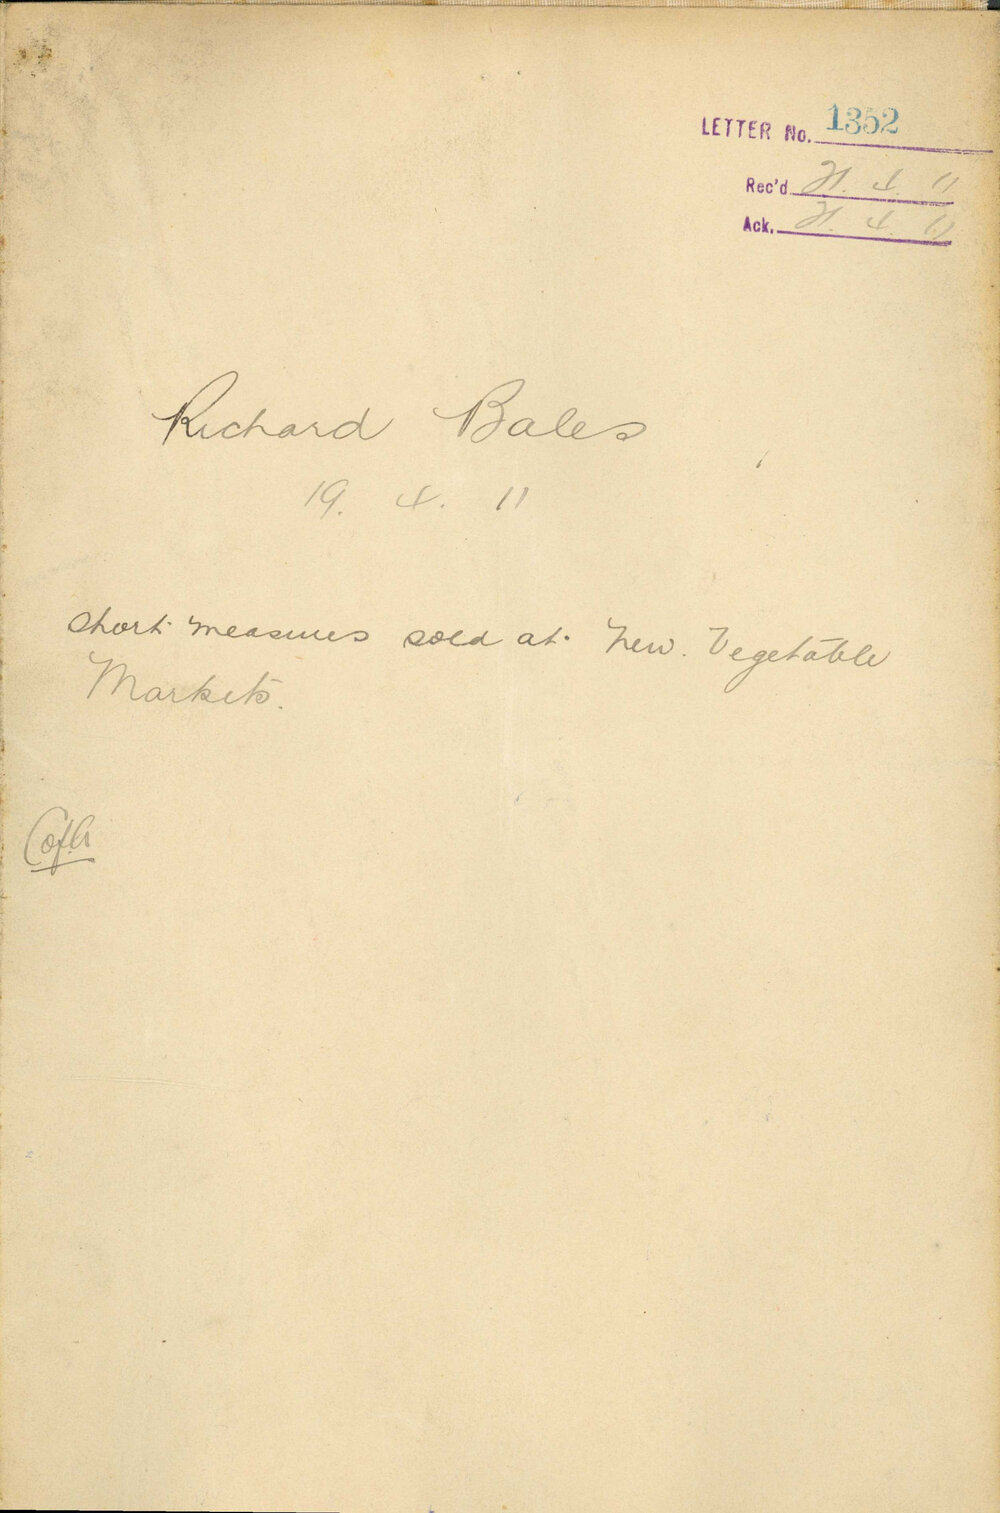 LETTER No. 1352
Rec'd 21. 4. 11
Ack. 21. 4. 11
Richard Bales
19. 4. 11
Short measures sold at New Vegetable
Markets.